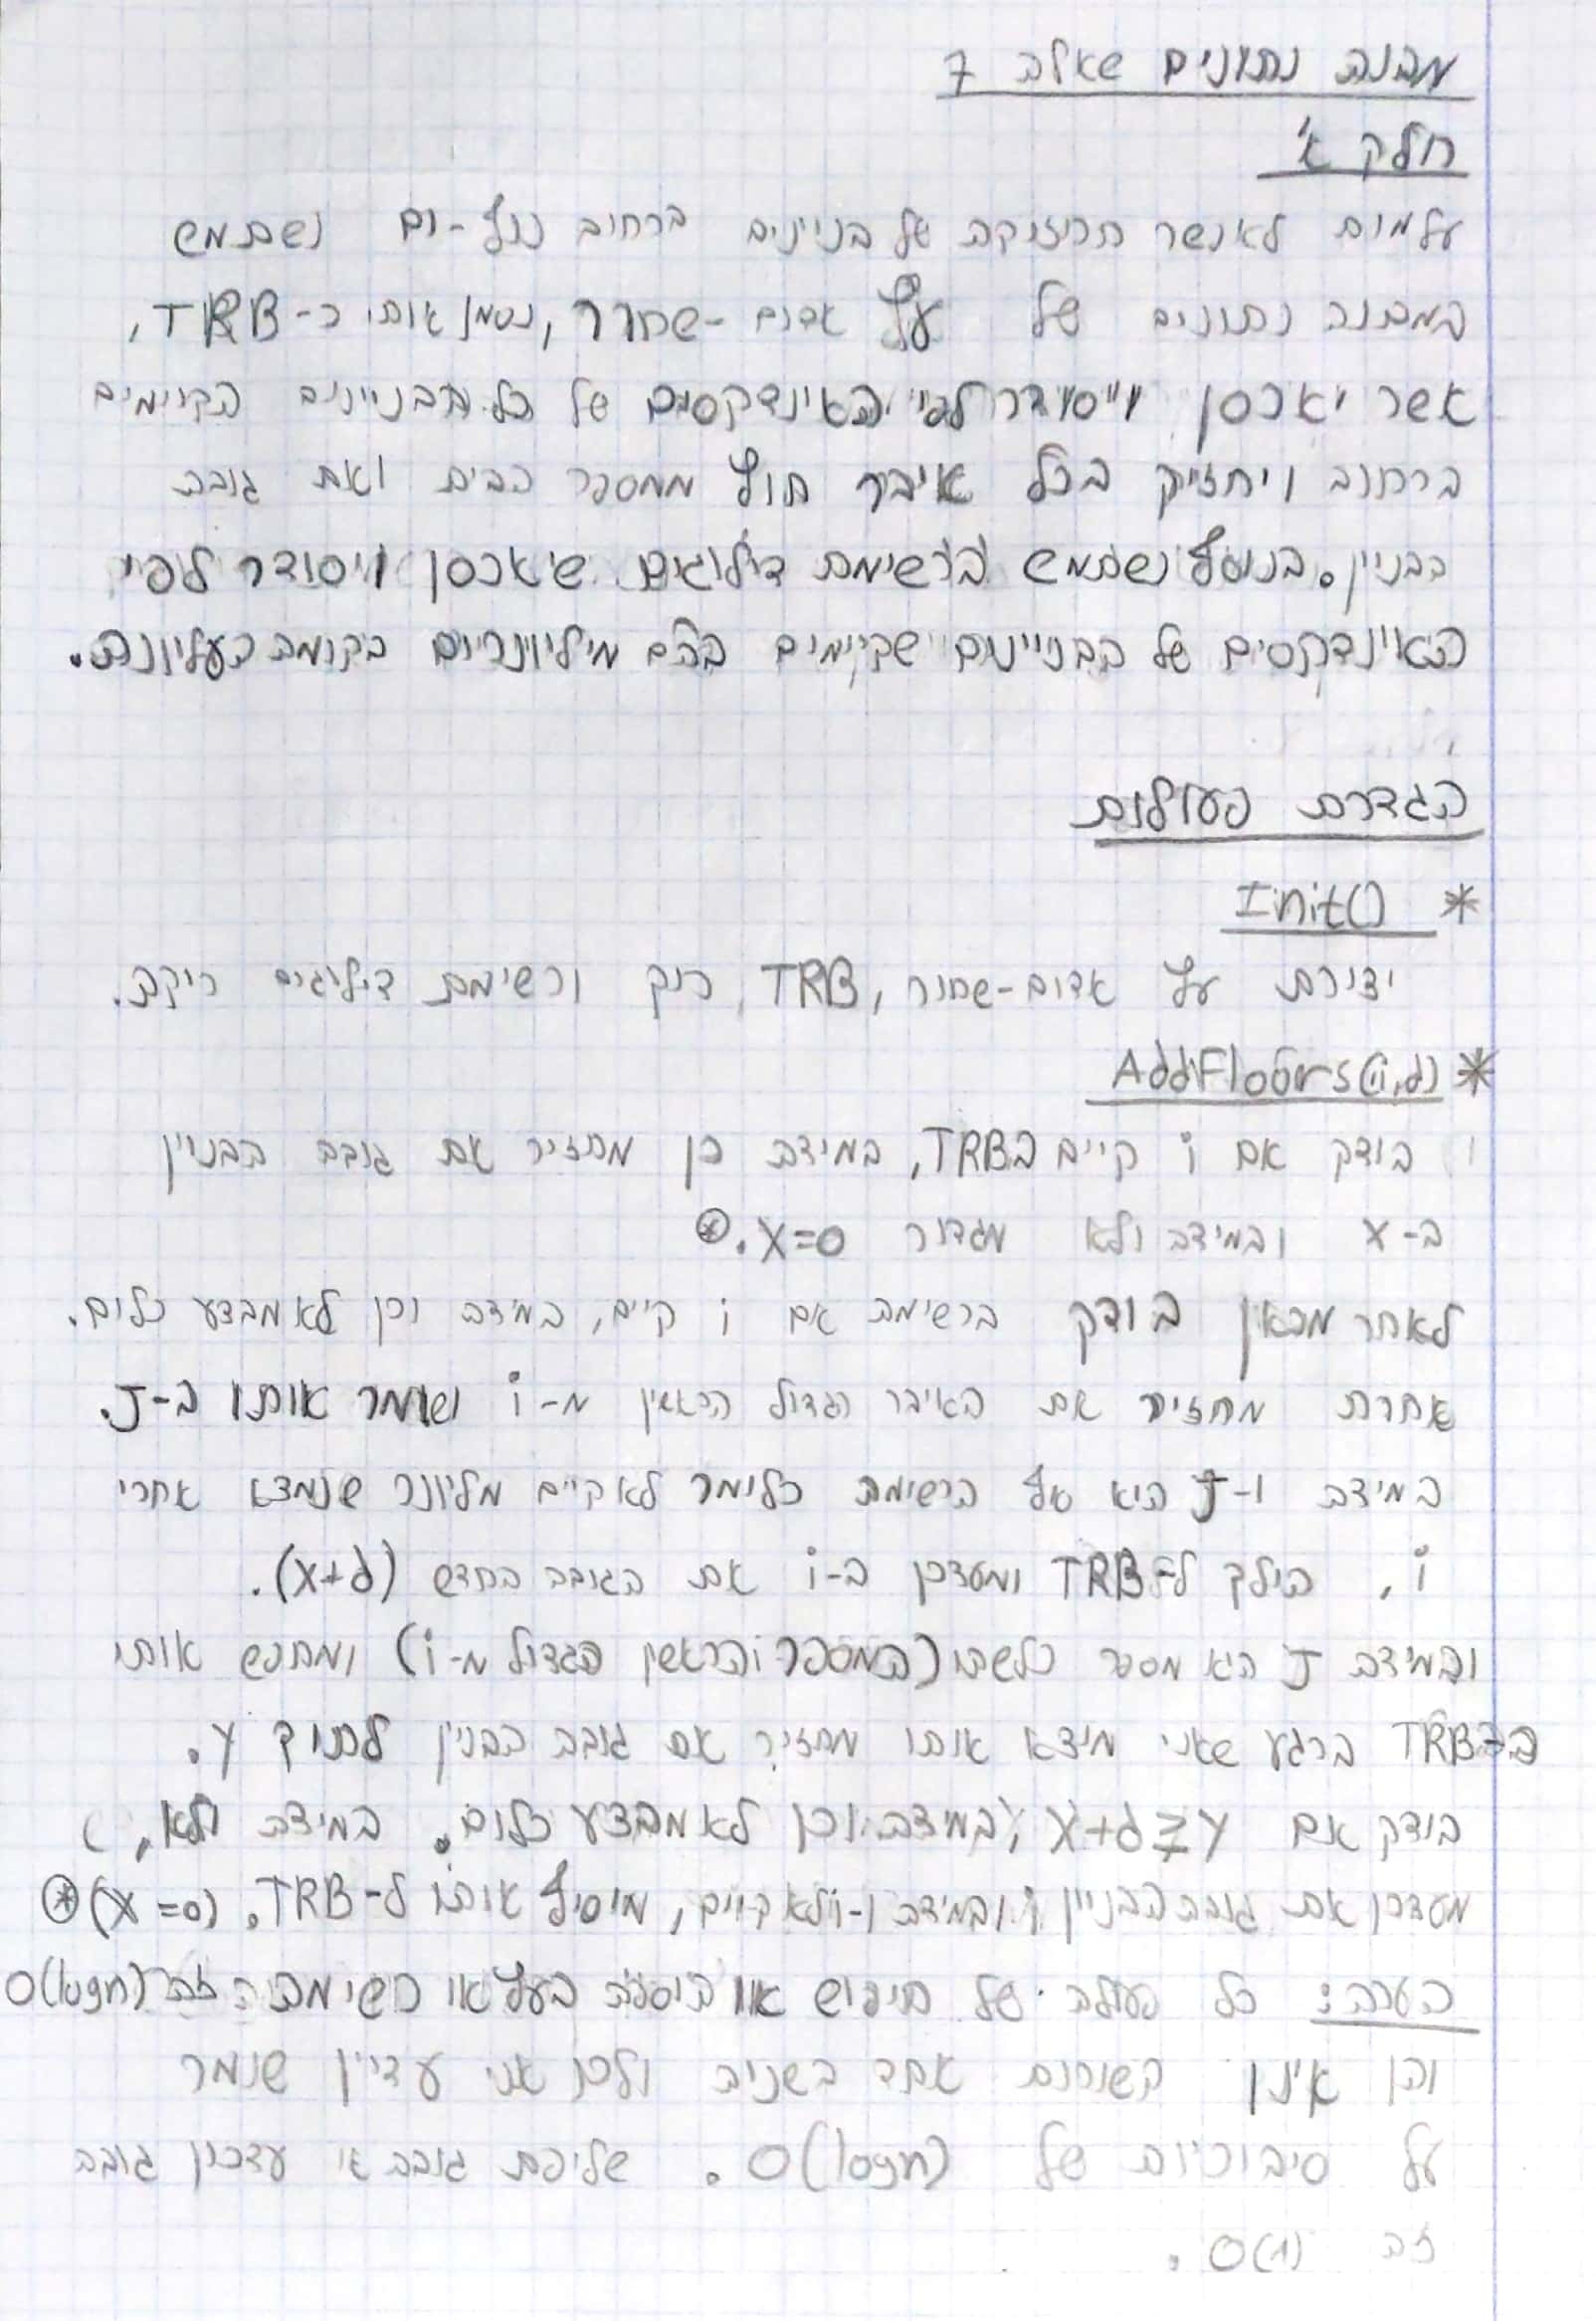 מבנה נתונים שאלה 7
חלק א'
על מנת לאפשר תחזוקה של בניינים ברחוב נוף-ים נשתמש
במבנה נתונים של עץ אדום-שחור, נסמן אותו כ-TRB,
אשר יאכסן ויסודר לפי האינדקסים של כל הבניינים הקיימים
ברחוב ויחזיק בכל איבר חוץ ממספר הבית ואת גובה
הבניין. בנוסף נשתמש ברשימת דילוגים שיאכסן ויסודר לפי
האינדקסים של הבניינים שקיימים בהם מיליונרים בקומה העליונה.
הגדרת פעולות
* Init()
יצירת עץ אדום-שחור, TRB, ריק ורשימת דילוגים ריקה.
* AddFloors(i,d)
בודק אם i קיים בTRB, במידה כן מחזיר את גובה הבניין
ב-x ובמידה ולא מגדור x=0. ⊛
לאחר מכאן בודק ברשימה אם i קיים, במידה וכן לא מבצע כלום.
אחרת מחזיר את האיבר הגדול הראשון מ-i ושומר אותו ב-J.
במידה ו-J היא סוף הרשימה כלומר לא קיים מליונר שנמצא אחרי
i, הולך ל-TRB ומעדכן ב-i את הגובה החדש (x+d).
ובמידה J היא מספר כלשהו (המספר הראשון הגדול מ-i) ומחפש אותו
ב-TRB ברגע שאני מוצא אותו מחזיר את גובה הבנין לתוך y.
בודק אם x+d≥y, במידה וכן לא מבצע כלום. במידה ולא,
מעדכן את גובה הבניין i ובמידה ו-i לא קיים, מוסיף אותו ל-TRB. (x=0) ⊛
הערה: כל פעולה של חיפוש או הוספה בעץ או רשימה זה O(logn)
והן אינן קשורות אחד בשניה ולכן אני עדיין שומר
על סיבוכיות של O(logn). שליפת גובה או עדכון גובה
זה O(1).